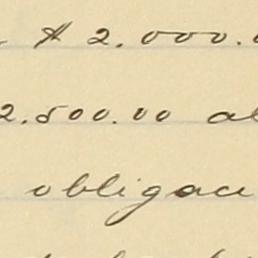 $ 2.000.
2.500.00 al
obligaci